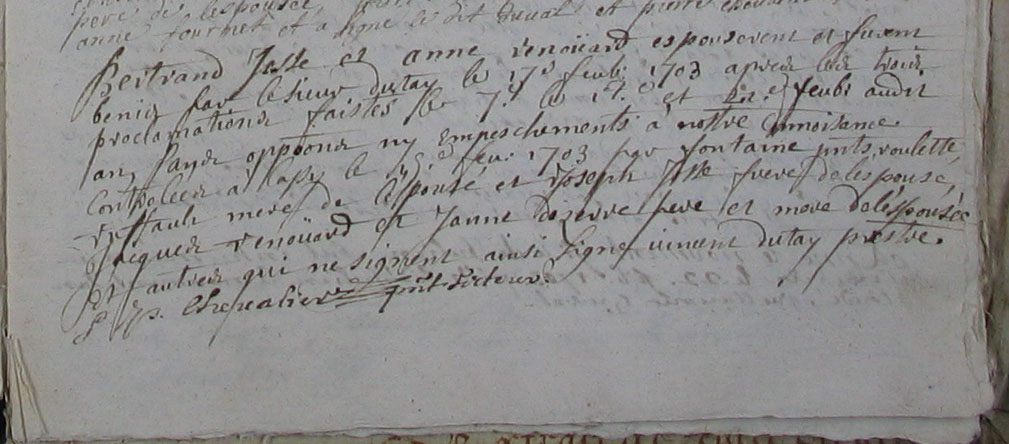 pere de lespousée
anne fournet et a signé le dit et pierre
Bertrand Josse et anne renoüard espouserent et furent
benis par le sieur dutay le 17e feubr 1703 apres les trois
proclamations faistes le 7e le et feubr audit
an, sans oppoõns ny empeschements à nostre connoisance.
Controlees à le feu: 1703 par fontaine pnts roulette
rustault mere de l'éspousé et Joseph Josse frere de lespousé,
Jacques renoüard et Janne pere et mere de l'éspousée
et autres qui ne signent ainsi signé vincent dutay prestre.
J p. Chevalier pnt recteur.